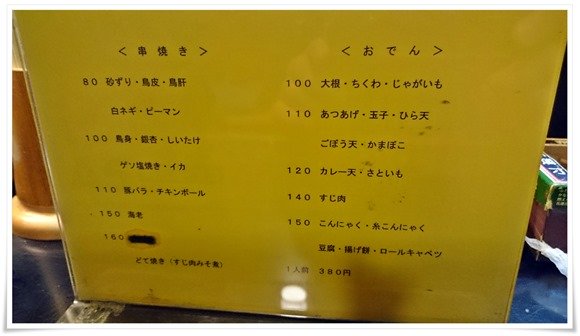 ＜ 串 焼 き ＞
８０ 砂ずり・鳥皮・鳥肝
白ネギ・ピーマン
１００ 鳥身・銀杏・しいたけ
ゲソ塩焼き・イカ
１１０ 豚バラ・チキンボール
１５０ 海老
１６０
どて焼き（すじ肉みそ煮）
＜ お で ん ＞
１００ 大根・ちくわ・じゃがいも
１１０ あつあげ・玉子・ひら天
ごぼう天・かまぼこ
１２０ カレー天・さといも
１４０ すじ肉
１５０ こんにゃく・糸こんにゃく
豆腐・揚げ餅・ロールキャベツ
１人前 ３８０円